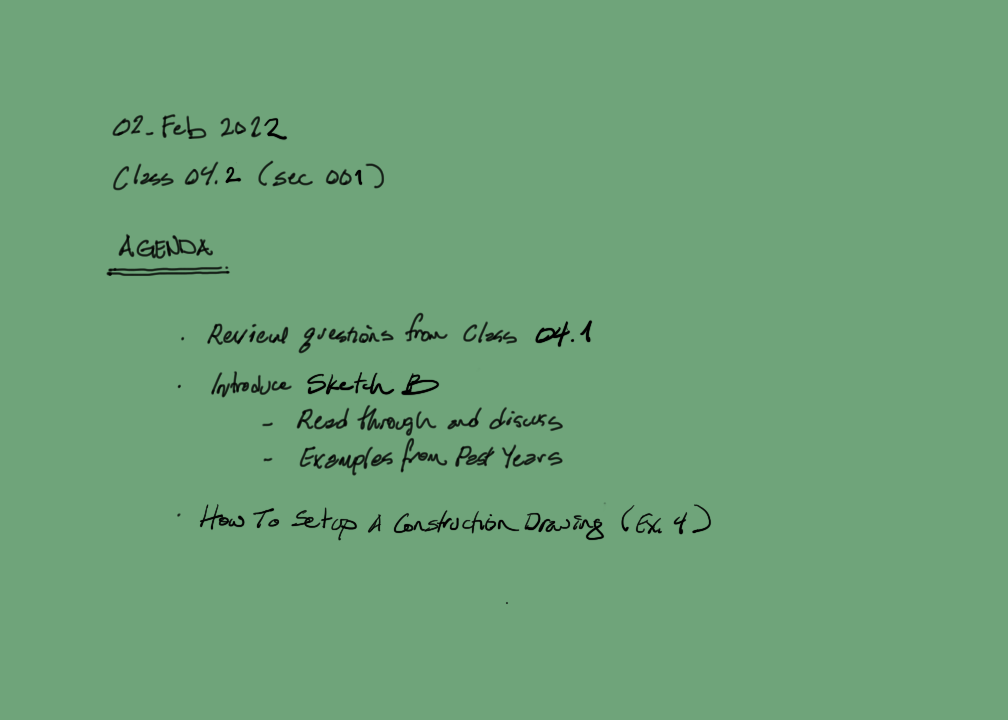 02-Feb 2022
Class 04.2 (sec 001)
AGENDA
· Review questions from Class 04.1
· Introduce Sketch B
- Read through and discuss
- Examples from Past Years
· How To Setup A Construction Drawing (Ex. 4)